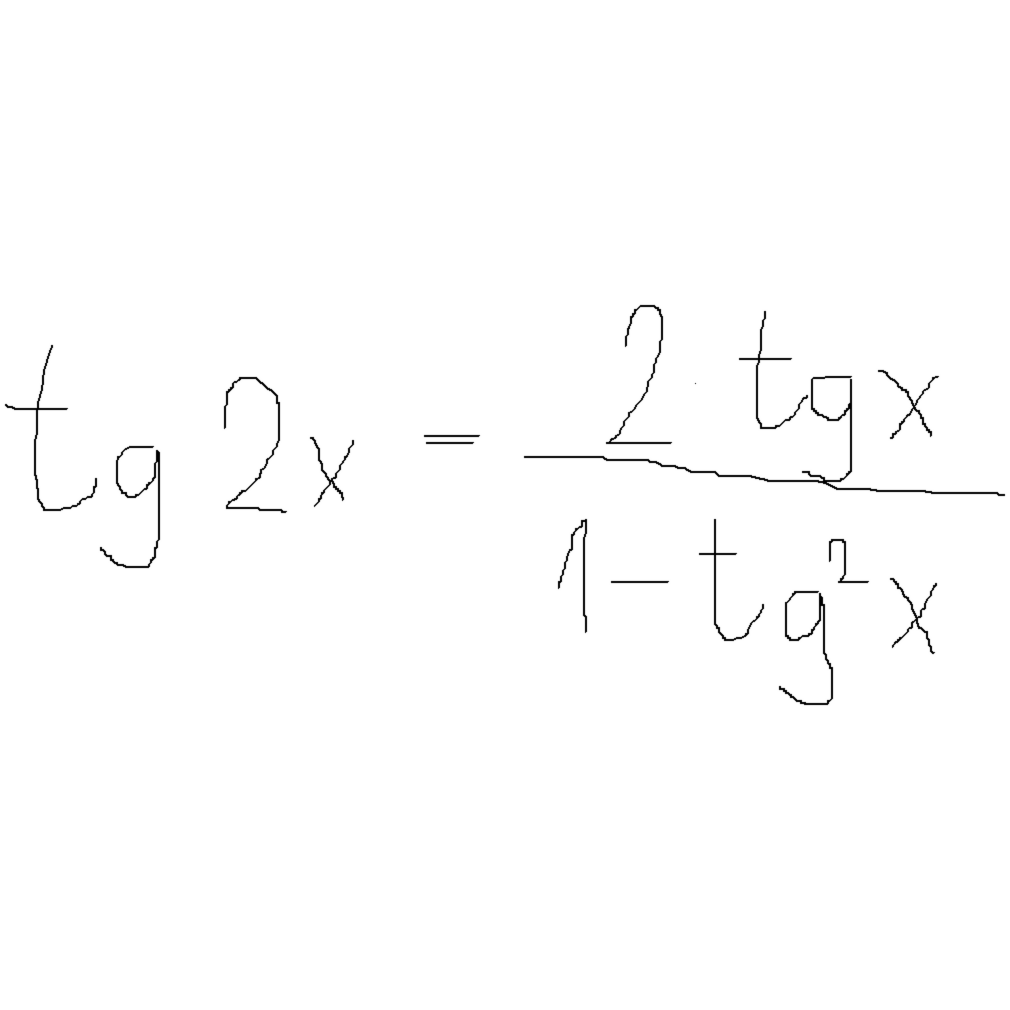 tg 2x = 2 tg x / 1 - tg² x